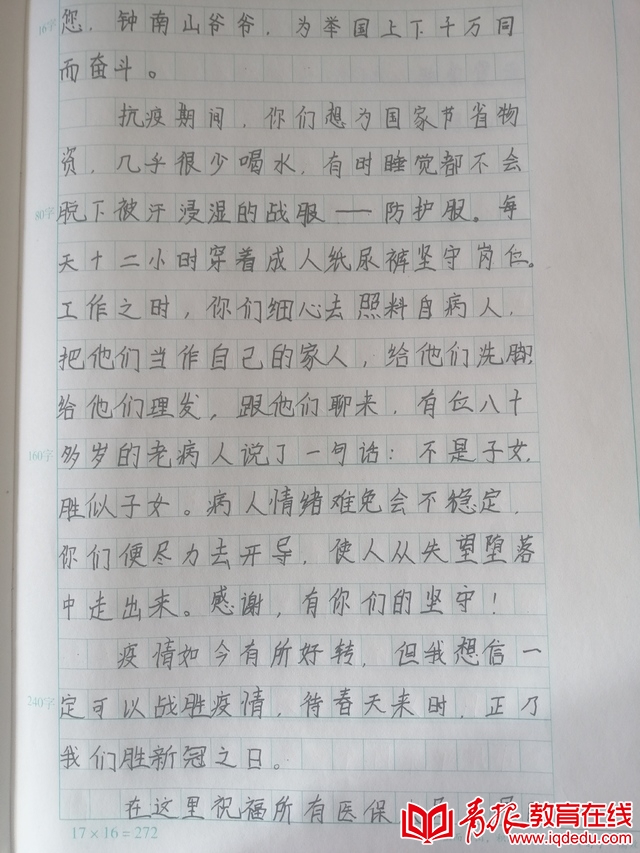 16字
您，钟南山爷爷，为举国上下千万同
而奋斗。
抗疫期间，你们想为国家节省物
资，几乎很少喝水，有时睡觉都不会
80字
脱下被汗浸湿的战服——防护服。每
天十二小时穿着成人纸尿裤坚守岗位。
工作之时，你们细心去照料自病人，
把他们当作自己的家人，给他们洗脚
给他们理发，跟他们聊来，有位八十
160字
多岁的老病人说了一句话：不是子女，
胜似子女。病人情绪难免会不稳定，
你们便尽力去开导，使人从失望堕落
中走出来。感谢，有你们的坚守！
疫情如今有所好转，但我想信一
240字
定可以战胜疫情，待春天来时，正乃
我们胜新冠之日。
在这里祝福所有医保
17×16=272
青报教育在线
www.iqdedu.com